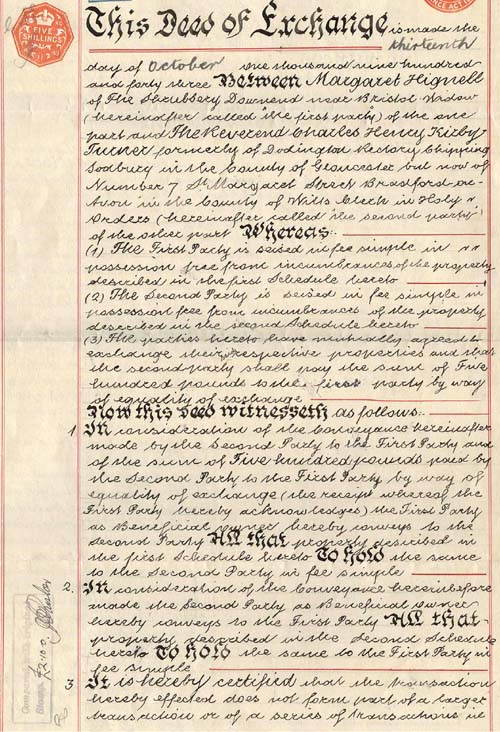 FIVE
SHILLINGS
This Deed of Exchange is made the
thirteenth
day of October one thousand nine hundred
and forty three Between Margaret Hignell
of The Shrubbery Downend near Bristol Widow
(hereinafter called "the first party") of the one
part and The Reverend Charles Henry Kirby-
Turner formerly of Dodington Rectory Chipping
Sodbury in the County of Gloucester but now of
Number 7 St Margaret Street Bradford-on-
Avon in the County of Wilts Clerk in Holy
Orders (hereinafter called "the second party")
of the other part Whereas:-
(1) The First Party is seised in fee simple in
possession free from incumbrances of the property
described in the first Schedule hereto
(2) The Second Party is seised in fee simple in
possession free from incumbrances of the property
described in the second Schedule hereto
(3) The parties hereto have mutually agreed to
exchange their respective properties and that
the second party shall pay the sum of Five
hundred pounds to the first party by way
of equality of exchange
Now this Deed witnesseth as follows:-
1. In consideration of the Conveyance hereinafter
made by the Second Party to the First Party and
of the sum of Five hundred pounds paid by
the Second Party to the First Party by way of
equality of exchange (the receipt whereof the
First Party hereby acknowledges) the First Party
as Beneficial owner hereby conveys to the
Second Party All that property described in
the first Schedule hereto To hold the same
to the Second Party in fee simple
2. In consideration of the Conveyance hereinbefore
made the Second Party as Beneficial Owner
hereby conveys to the First Party All that
property described in the Second Schedule
hereto To hold the same to the First Party in
fee simple
3 It is hereby certified that the transaction
hereby effected does not form part of a larger
transaction or of a series of transactions in